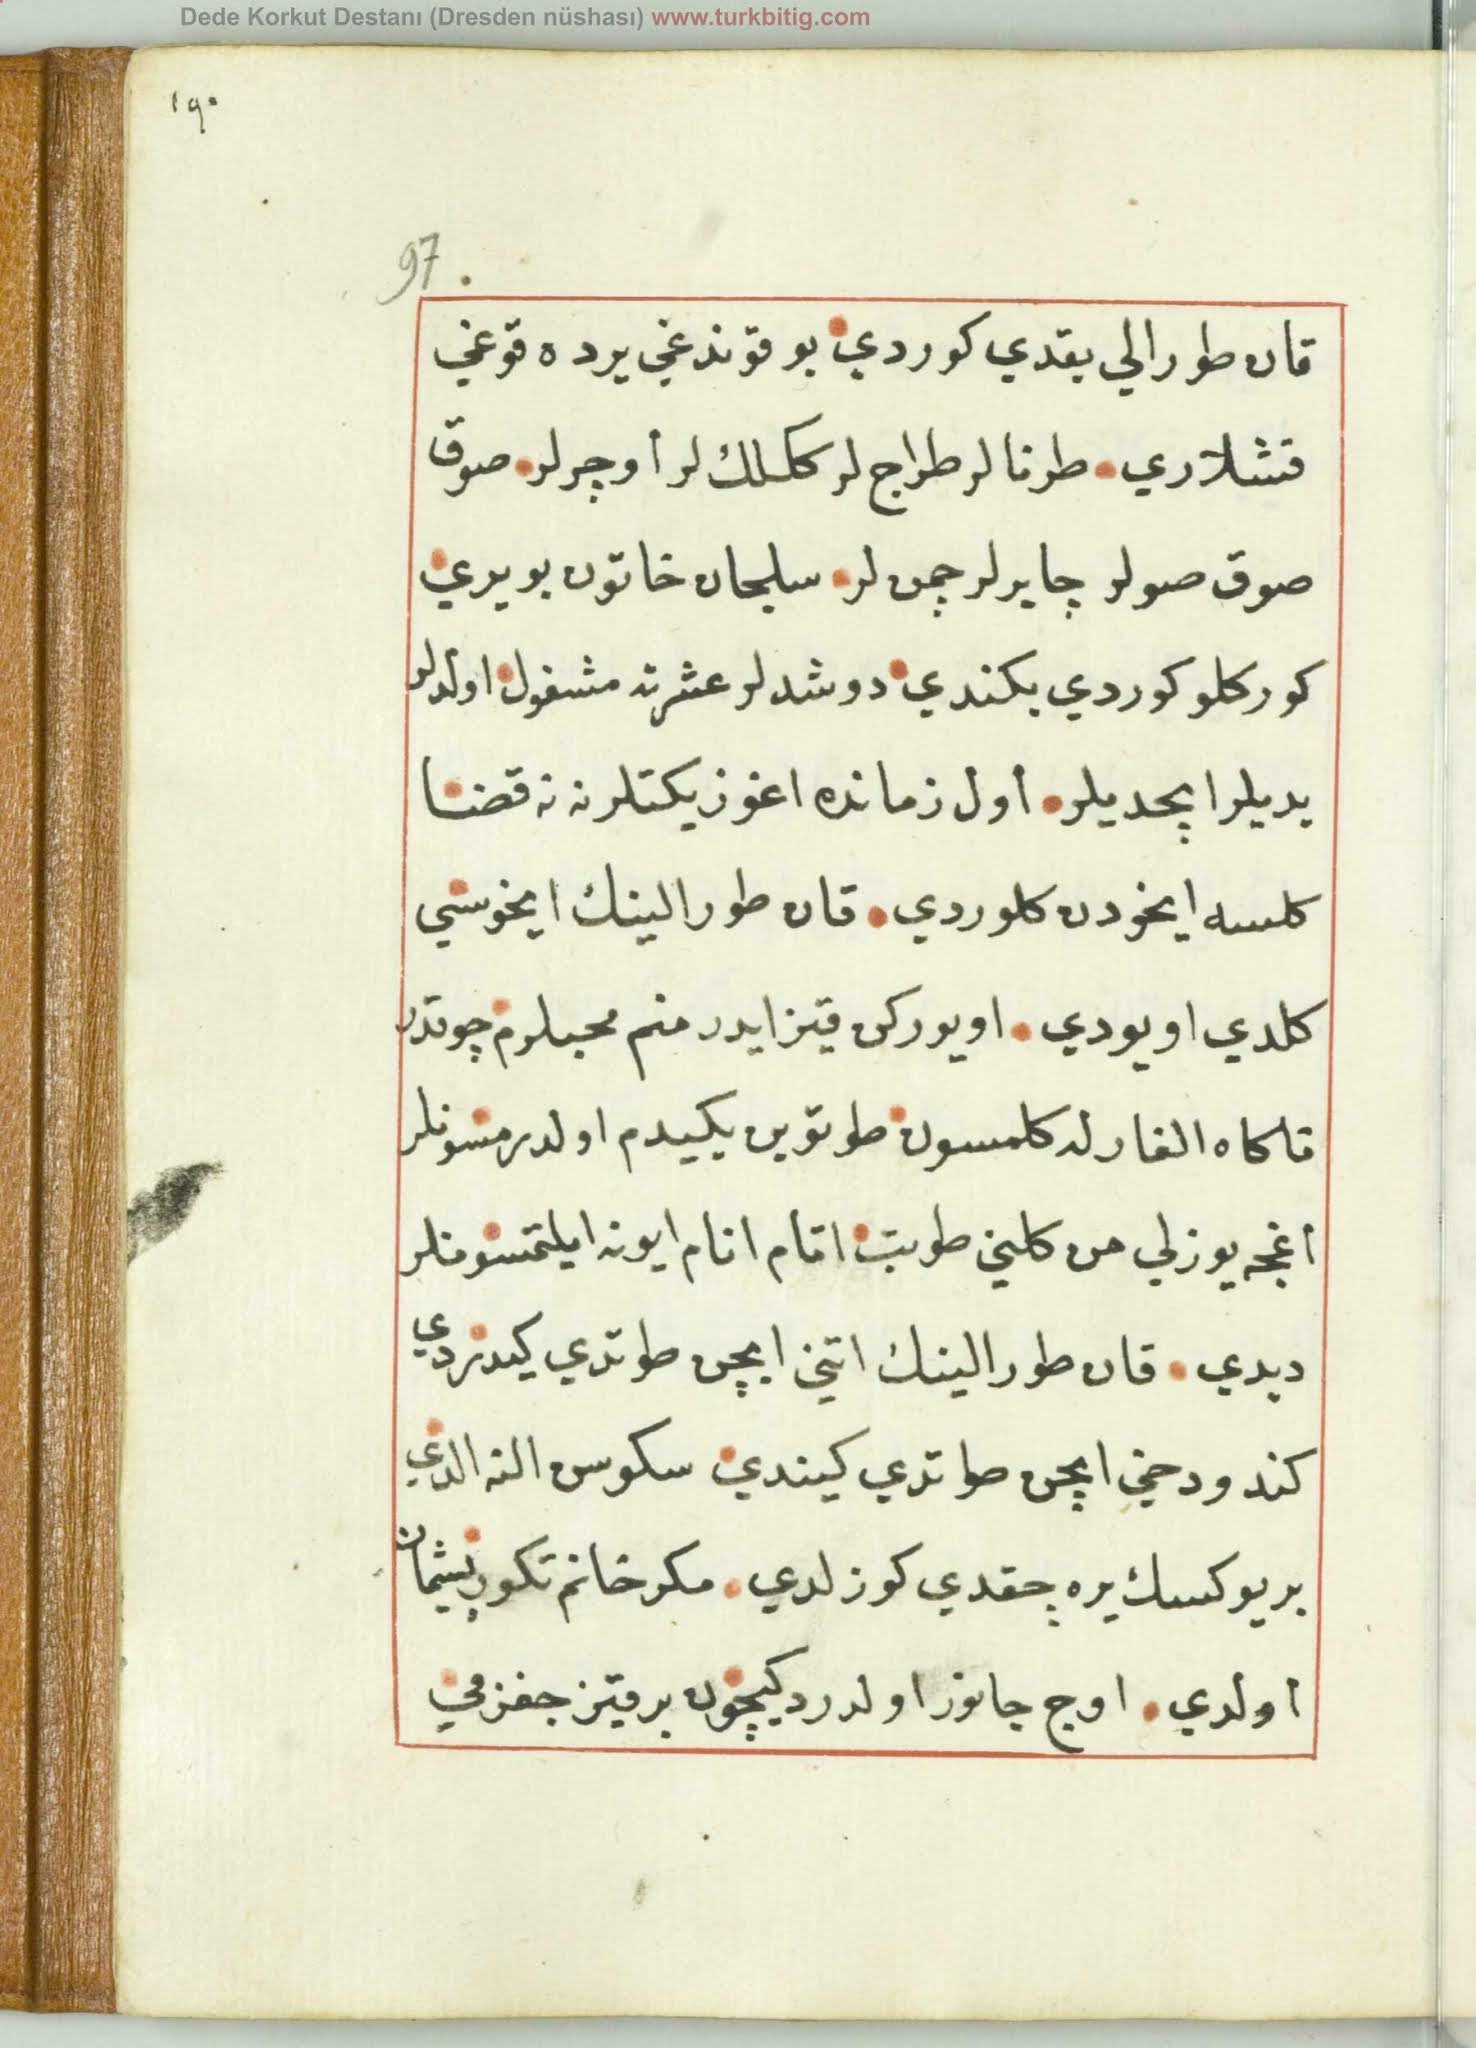 Dede Korkut Destanı (Dresden nüshası) www.turkbitig.com
١٩٠
97
قان طورالي بقدي كوردي بو قوندغي يرده قوغي
قشلاري طرنالر طراج لر ككلك لر أوچرلر صوق
صوق صولر چايرلر چمن لر سلجان خاتون بو يري
كوركلو كوردي بكندي دوشدلر عشرته مشغول اولدلر
يديلر ايچديلر أول زمانده اغوز يكتلرنه نه قضا
كلسه ايخودن كلوردي قان طورالينك ايخوسي
كلدي اويودي اويوركن قيز ايدر منم محبلرم چوقدر
قاكاه الغارله كلمسون طوتوبن يكيدم اولدرمسونلر
أغجه يوزلي من كليني طوتب اتام انام ايونه ايلتمسونلر
ديدي قان طورالينك اتني ايچن طوتدي كيدردي
كندو دخي ايچن طوتدي كيندي سكوسن النه الدي
بر يوكسك يره چقدي كوزلدي مكر خانم تكور پشيمان
أولدي اوج جانوز اولدردكيچون بر قيز جغزمي